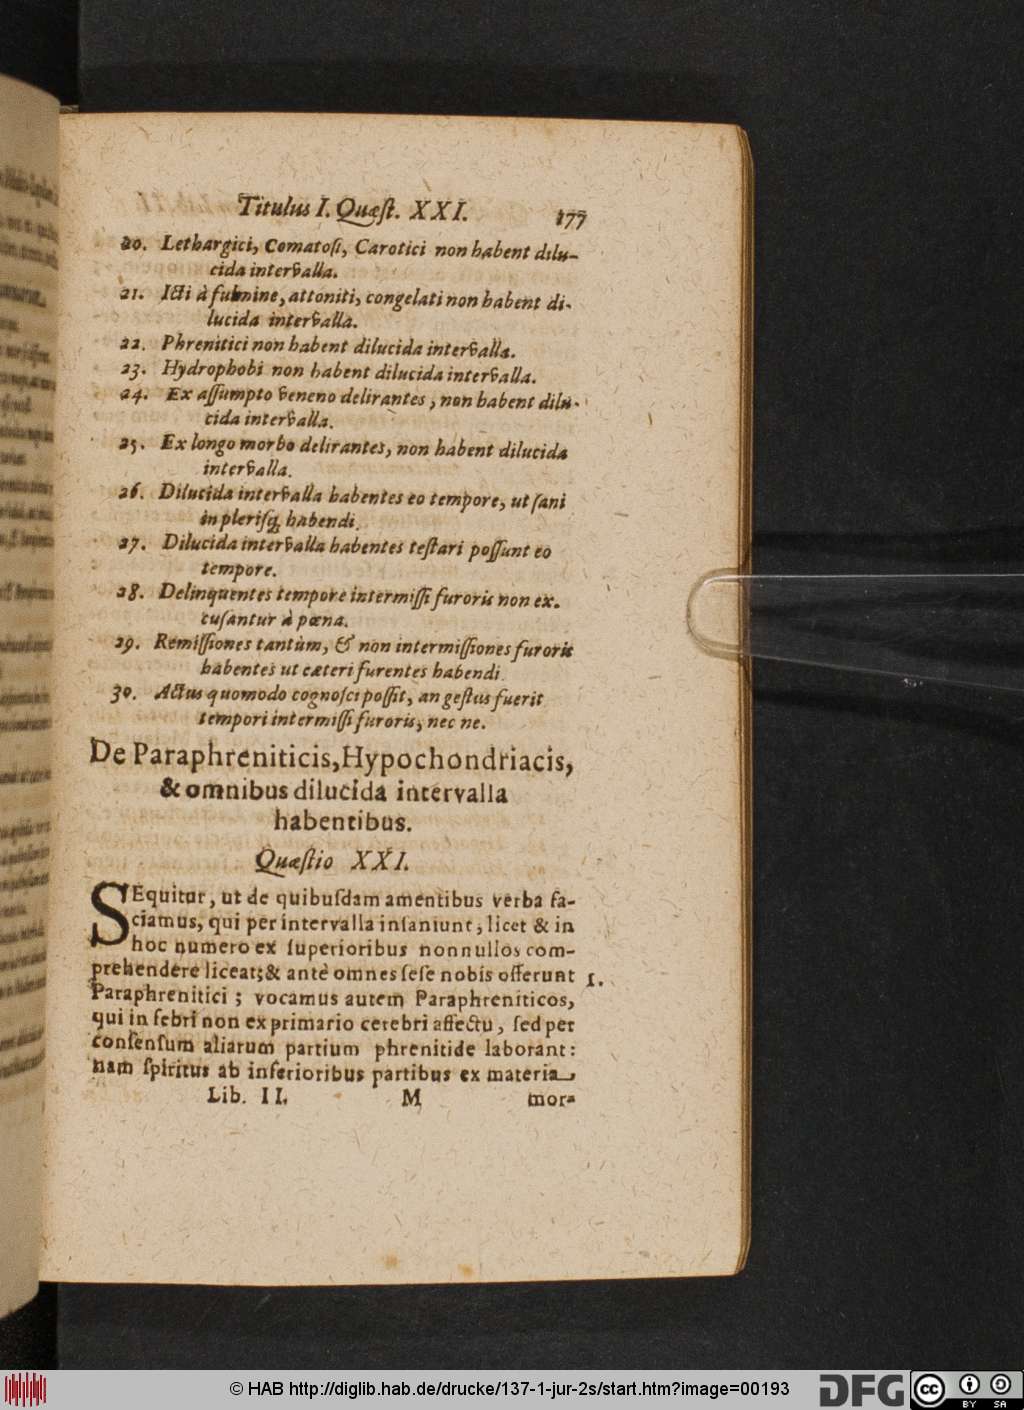 Titulus I. Quæſt. XXI. 177
20. Lethargici, Comatoſi, Carotici non habent dilu-
cida intervalla.
21. Icti à fulmine, attoniti, congelati non habent di-
lucida intervalla.
22. Phrenitici non habent dilucida intervalla.
23. Hydrophobi non habent dilucida intervalla.
24. Ex aſſumpto veneno delirantes, non habent dilu-
cida intervalla.
25. Ex longo morbo delirantes, non habent dilucida
intervalla.
26. Dilucida intervalla habentes eo tempore, ut ſani
in pleriſq; habendi.
27. Dilucida intervalla habentes teſtari poſſunt eo
tempore.
28. Delinquentes tempore intermiſſi furoris non ex-
cuſantur à pœna.
29. Remiſſiones tantùm, & non intermiſſiones furoris
habentes ut cæteri furentes habendi.
30. Actus quomodo cognoſci poſſit, an geſtus fuerit
tempori intermiſſi furoris, nec ne.
De Paraphreniticis, Hypochondriacis,
& omnibus dilucida intervalla
habentibus.
Quæſtio XXI.
SEquitur, ut de quibuſdam amentibus verba fa-
ciamus, qui per intervalla inſaniunt, licet & in
hoc numero ex ſuperioribus nonnullos com-
prehendere liceat; & antè omnes ſeſe nobis offerunt 1.
Paraphrenitici; vocamus autem Paraphreniticos,
qui in febri non ex primario cerebri affectu, ſed per
conſenſum aliarum partium phrenitide laborant:
nam ſpiritus ab inferioribus partibus ex materia
Lib. II. M mor-
© HAB http://diglib.hab.de/drucke/137-1-jur-2s/start.htm?image=00193 DFG cc BY SA